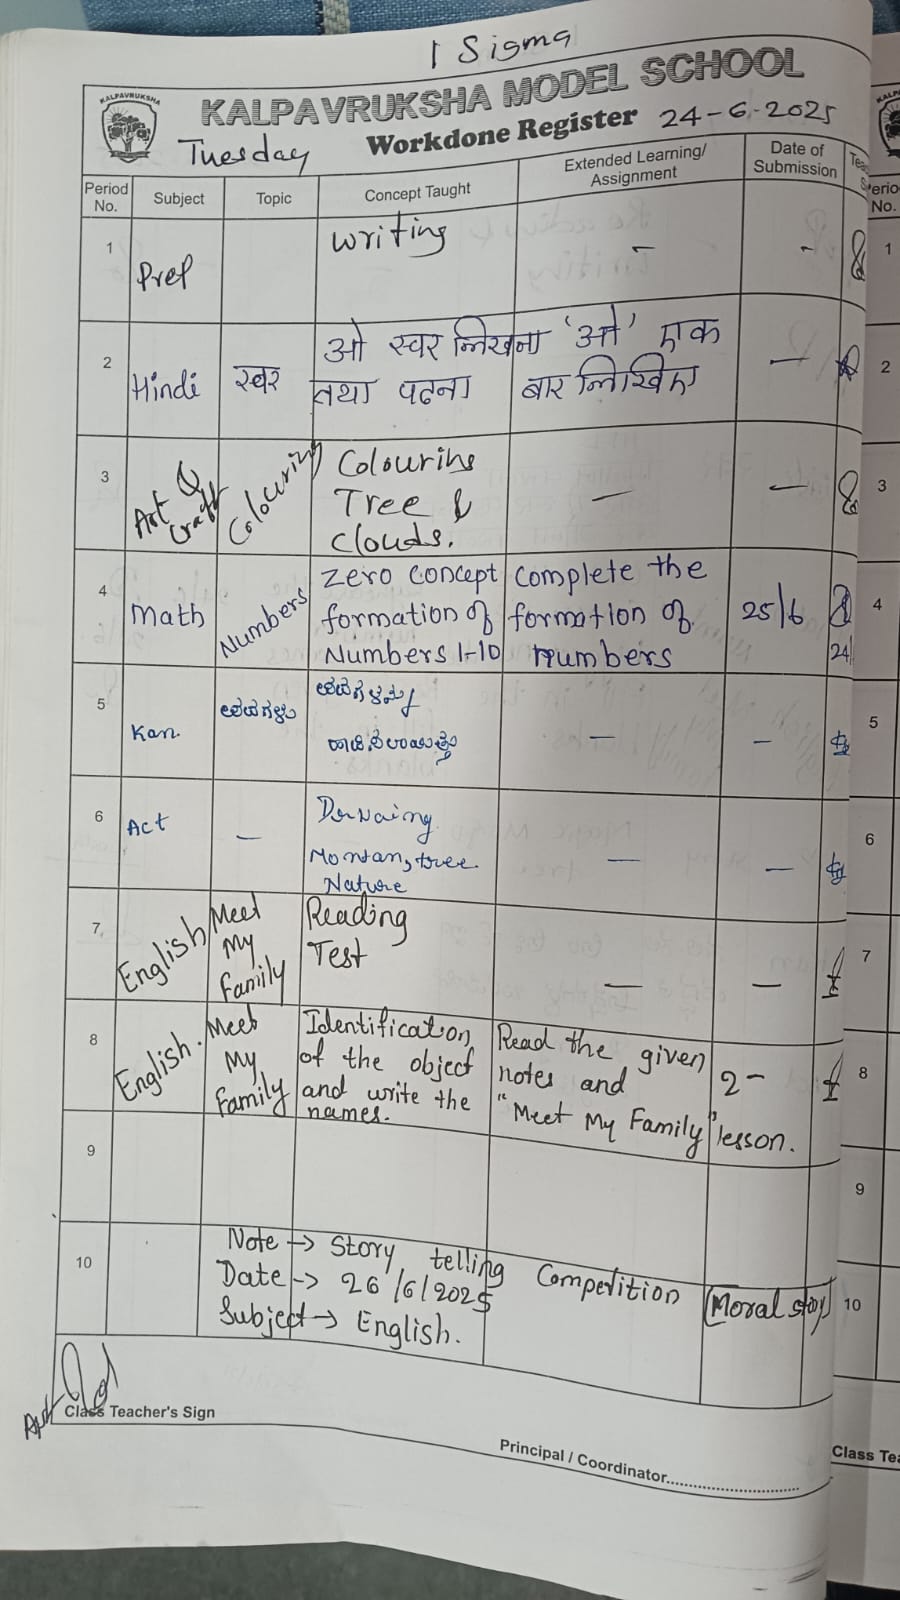 1 Sigma
KALPAVRUKSHA
KALPAVRUKSHA MODEL SCHOOL
Tuesday Workdone Register 24-6-2025
Period No. Subject Topic Concept Taught Extended Learning/ Assignment Date of Submission
1 Prep writing - -
2 Hindi स्वर ओ स्वर लिखना तथा पढना 'ओ' एक बार लिखिए -
3 Art & Craft Colouring Colouring Tree & clouds. - -
4 Math Numbers Zero concept formation of Numbers 1-10 complete the formation of numbers 25/6
24
5 Kan. - -
6 Act - Nature - -
7 English Meet My Family Reading Test - -
8 English. Meet My Family Identification of the object and write the names. Read the given notes and "Meet My Family" lesson. 2-
9
10 Note → Story telling Competition (Moral story)
Date → 26/6/2025
Subject → English.
Class Teacher's Sign
Principal / Coordinator
Period No.
1
2
3
4
5
6
7
8
9
10
Class Tea